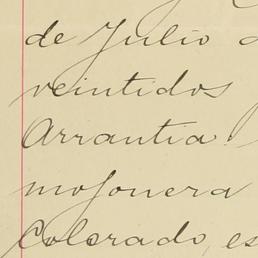 de Julio
veintidos
Arrantia
mojonera
Colorado, es